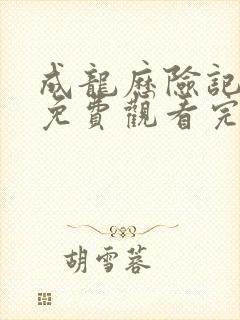 成龍歷險記
免費觀看完
胡雪蓉